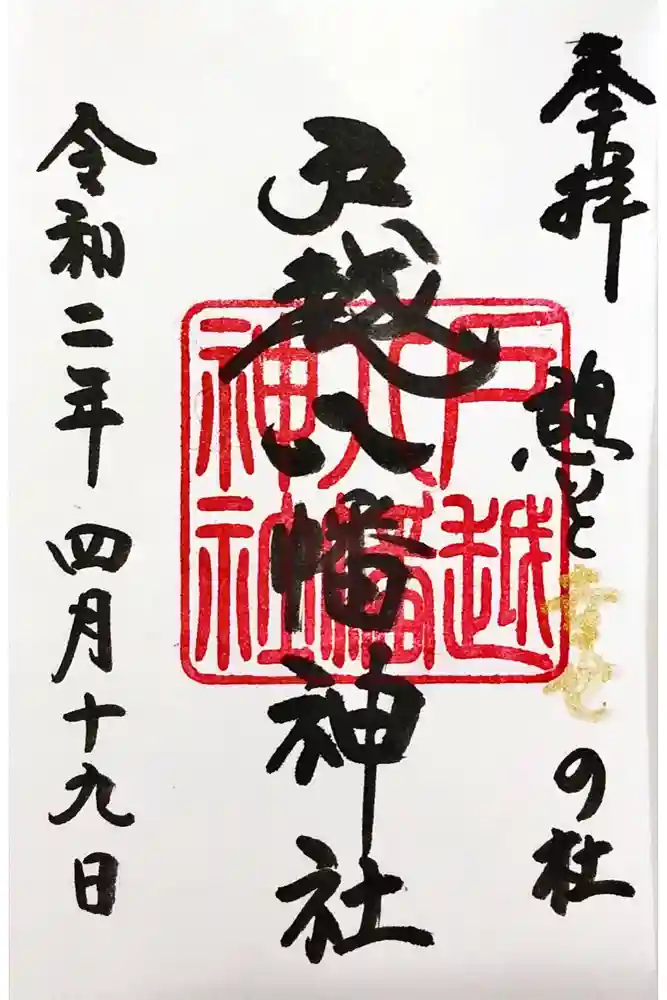 奉拝
憩いと幸せの杜
戸越八幡神社
戸越八幡神社
令和二年四月十九日